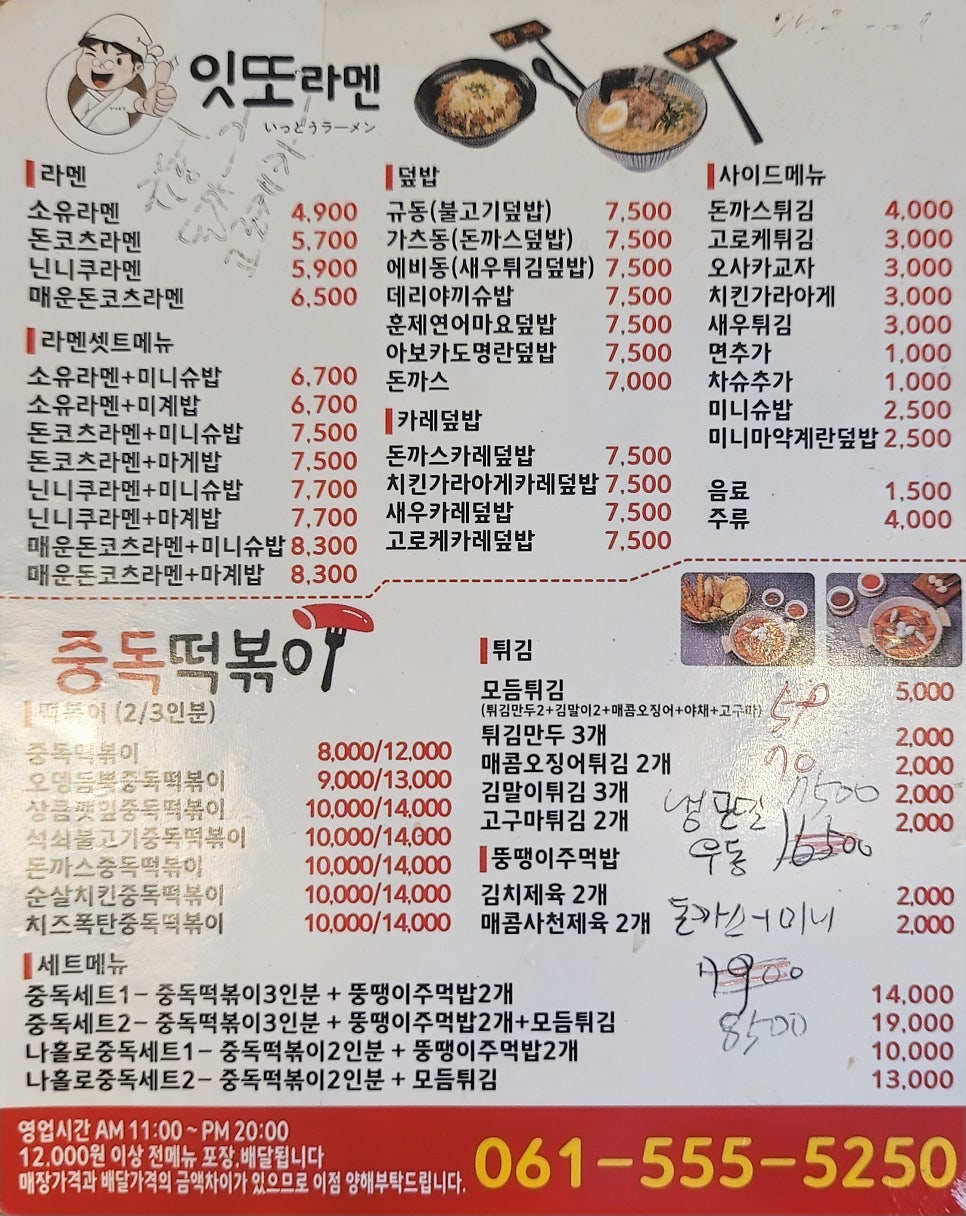 잇또라멘
いっとうラーメン
라멘
소유라멘 4,900
돈코츠라멘 5,700
닌니쿠라멘 5,900
매운돈코츠라멘 6,500
라멘셋트메뉴
소유라멘+미니슈밥 6,700
소유라멘+미계밥 6,700
돈코츠라멘+미니슈밥 7,500
돈코츠라멘+마게밥 7,500
닌니쿠라멘+미니슈밥 7,700
닌니쿠라멘+마계밥 7,700
매운돈코츠라멘+미니슈밥 8,300
매운돈코츠라멘+마계밥 8,300
덮밥
규동(불고기덮밥) 7,500
가츠동(돈까스덮밥) 7,500
에비동(새우튀김덮밥) 7,500
데리야끼슈밥 7,500
훈제연어마요덮밥 7,500
아보카도명란덮밥 7,500
돈까스 7,000
카레덮밥
돈까스카레덮밥 7,500
치킨가라아게카레덮밥 7,500
새우카레덮밥 7,500
고로케카레덮밥 7,500
사이드메뉴
돈까스튀김 4,000
고로케튀김 3,000
오사카교자 3,000
치킨가라아게 3,000
새우튀김 3,000
면추가 1,000
차슈추가 1,000
미니슈밥 2,500
미니마약계란덮밥 2,500
음료 1,500
주류 4,000
중독떡볶이
떡볶이 (2/3인분)
중독떡볶이 8,000/12,000
오뎅듬뿍중독떡볶이 9,000/13,000
상큼깻잎중독떡볶이 10,000/14,000
석쇠불고기중독떡볶이 10,000/14,000
돈까스중독떡볶이 10,000/14,000
순살치킨중독떡볶이 10,000/14,000
치즈폭탄중독떡볶이 10,000/14,000
튀김
모듬튀김 5,000
(튀김만두2+김말이2+매콤오징어+야채+고구마)
튀김만두 3개 2,000
매콤오징어튀김 2개 2,000
김말이튀김 3개 2,000
고구마튀김 2개 2,000
뚱땡이주먹밥
김치제육 2개 2,000
매콤사천제육 2개 2,000
냉모밀 7500
우동 6500
돈까스+미니
7900
8500
세트메뉴
중독세트1- 중독떡볶이3인분 + 뚱땡이주먹밥2개 14,000
중독세트2- 중독떡볶이3인분 + 뚱땡이주먹밥2개+모듬튀김 19,000
나홀로중독세트1- 중독떡볶이2인분 + 뚱땡이주먹밥2개 10,000
나홀로중독세트2- 중독떡볶이2인분 + 모듬튀김 13,000
영업시간 AM 11:00 ~ PM 20:00
12.000원 이상 전메뉴 포장,배달됩니다
매장가격과 배달가격의 금액차이가 있으므로 이점 양해부탁드립니다.
061-555-5250